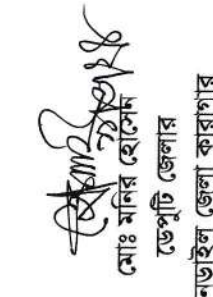 মোঃ মনির হোসেন
ডেপুটি জেলার
নড়াইল জেলা কারাগার